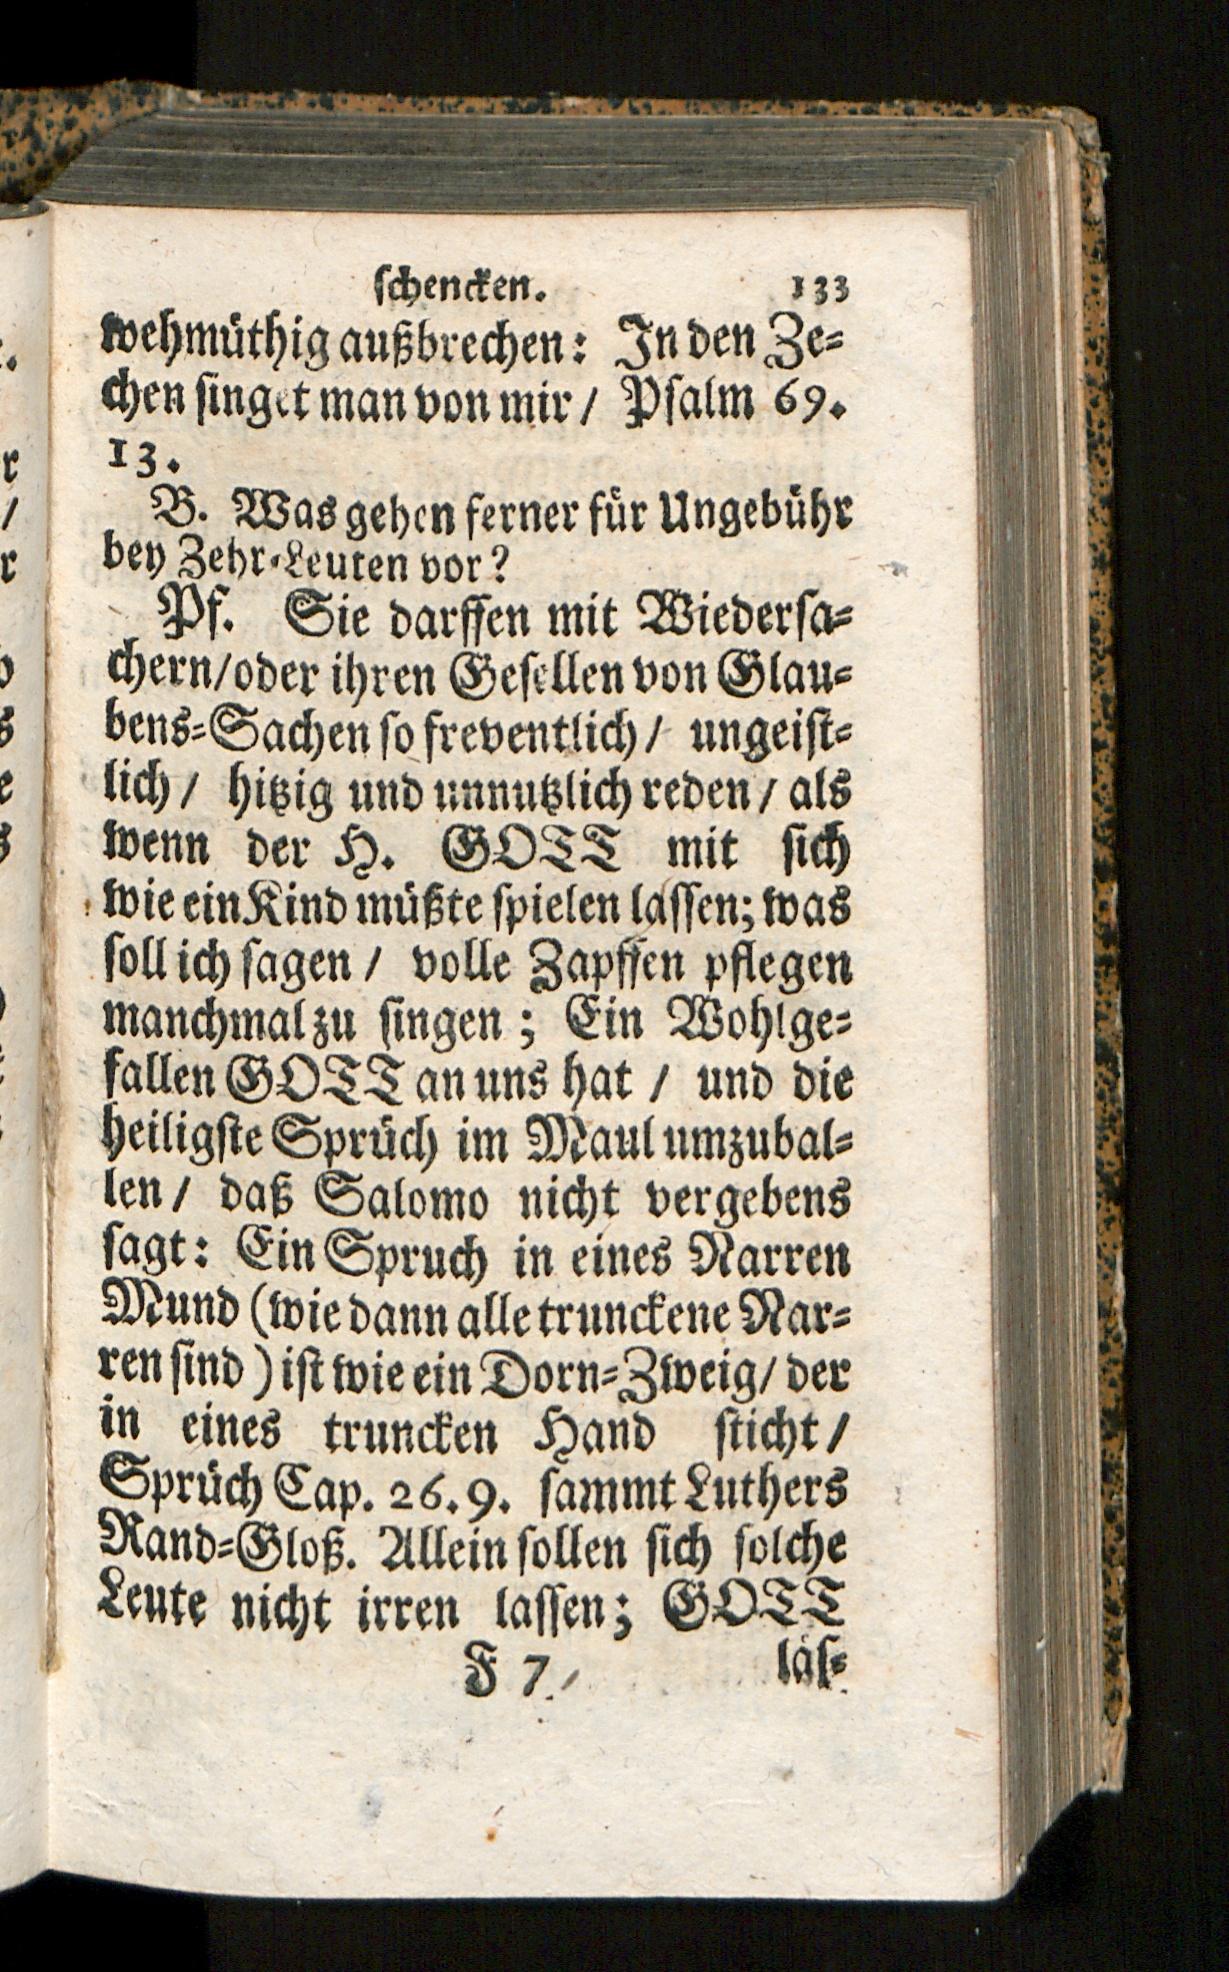 schencken. 133
wehmüthig außbrechen: In den Ze-
chen singet man von mir / Psalm 69.
13.
B. Was gehen ferner für Ungebühr
bey Zehr-Leuten vor?
Pf. Sie darffen mit Wiedersa-
chern/oder ihren Gesellen von Glau-
bens-Sachen so freventlich / ungeist-
lich / hitzig und unnutzlich reden / als
wenn der H. GOTT mit sich
wie ein Kind müßte spielen lassen; was
soll ich sagen / volle Zapffen pflegen
manchmal zu singen; Ein Wohlge-
fallen GOTT an uns hat / und die
heiligste Sprüch im Maul umzubal-
len / daß Salomo nicht vergebens
sagt: Ein Spruch in eines Narren
Mund (wie dann alle trunckene Nar-
ren sind) ist wie ein Dorn-Zweig/ der
in eines truncken Hand sticht /
Sprüch Cap. 26. 9. sammt Luthers
Rand-Gloß. Allein sollen sich solche
Leute nicht irren lassen; GOTT
F 7 läs-